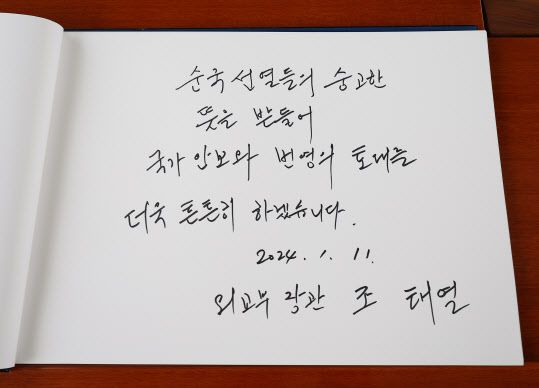 순국선열들의 숭고한
뜻을 받들어
국가안보와 번영의 토대를
더욱 튼튼히 하겠습니다.
2024. 1. 11.
외교부 장관 조 태열